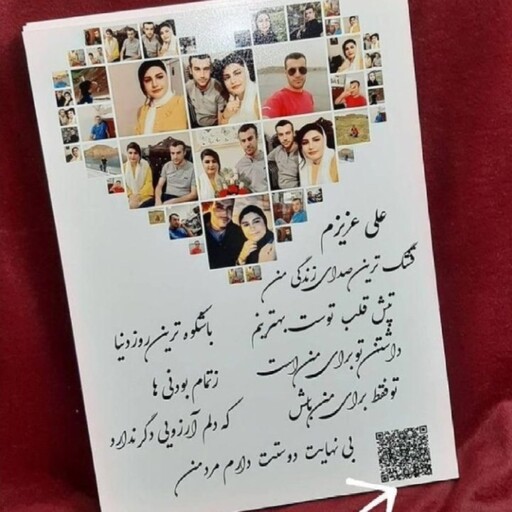 علی عزیزم
قشنگ ترین صدای زندگی من
تپش قلب توست بهترینم
باشکوه ترین روز دنیا
داشتن تو برای من است
ز تمام بودنی ها
تو فقط برای من باش
که دلم آرزویی دگر ندارد
بی نهایت دوستت دارم مرد من